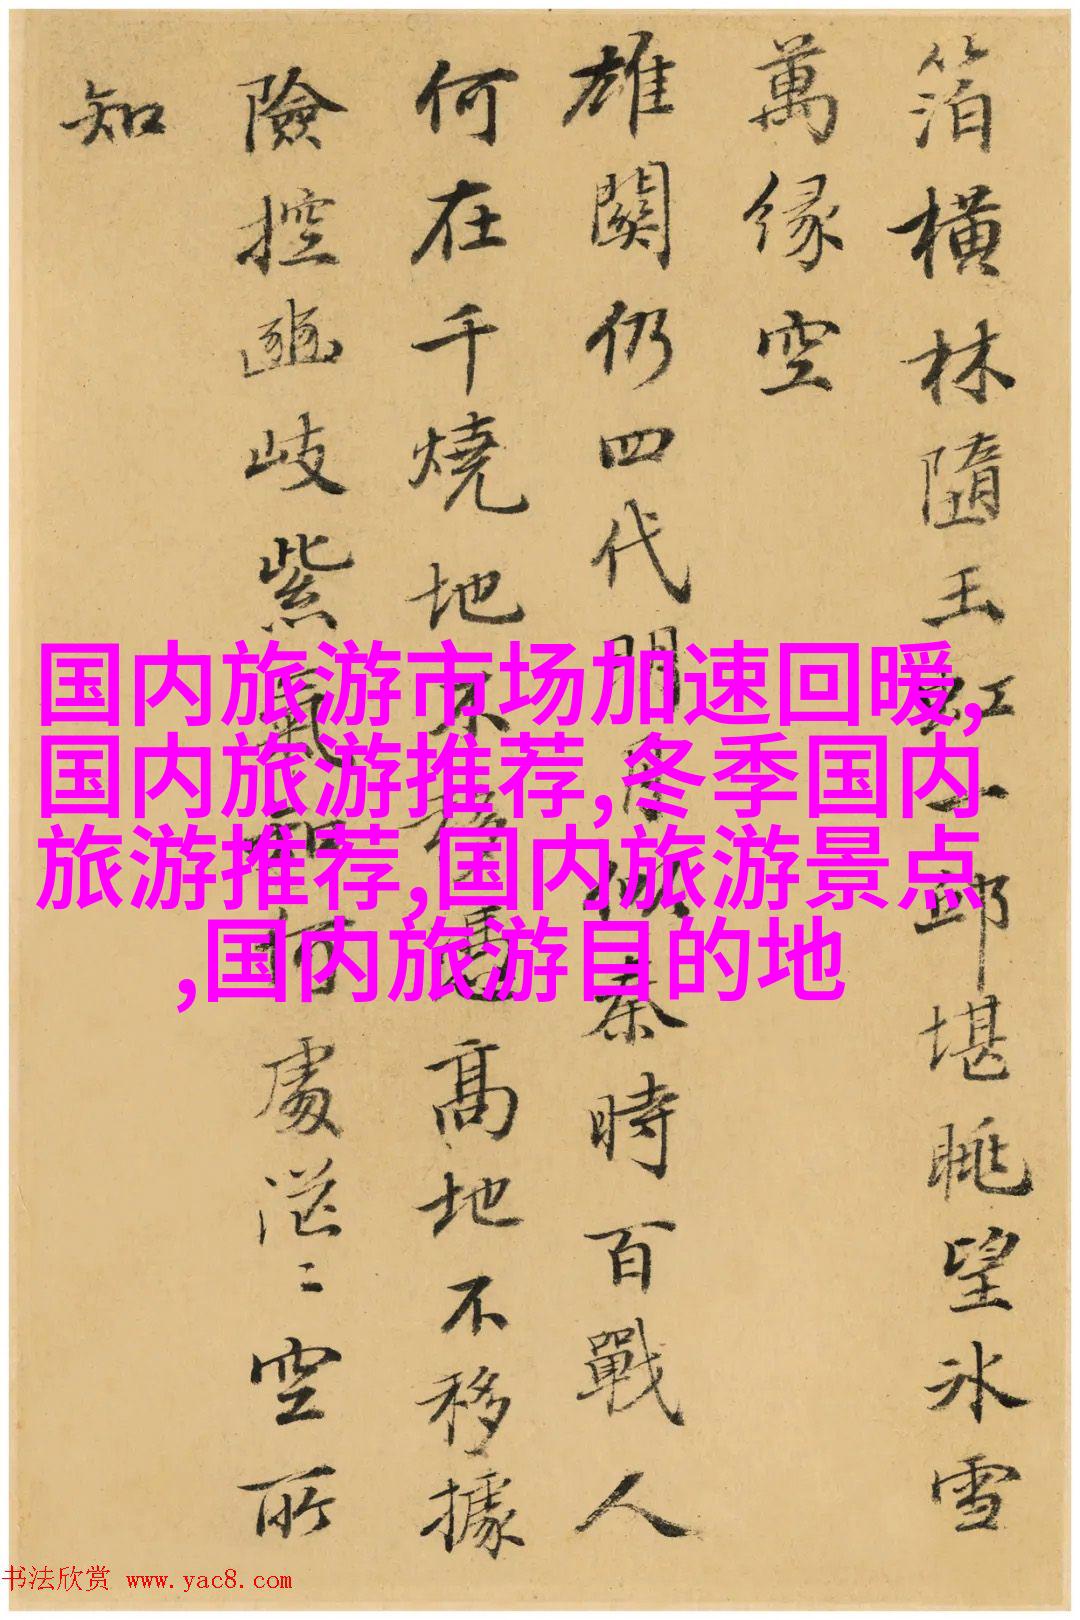 箔橫林隨玉虹一邱堪眺望氷雪
萬緣空
雄關仍四代明月似秦時百戰人
何在千燒地不憑高地不移據
險控豳岐紫氣知何處茫〻空所
知
国内旅游市场加速回暖,
国内旅游推荐,冬季国内
旅游推荐,国内旅游景点
,国内旅游目的地
书法欣赏 www.yac8.com